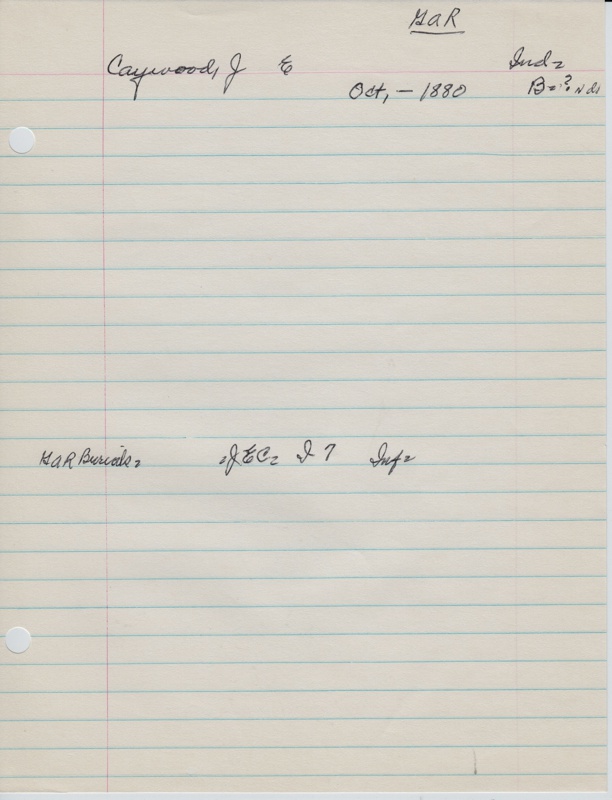 GAR
Caywood, J E Ind=
Oct, - 1880 B=?
GAR Burials= =JEC= I 7 Inf=